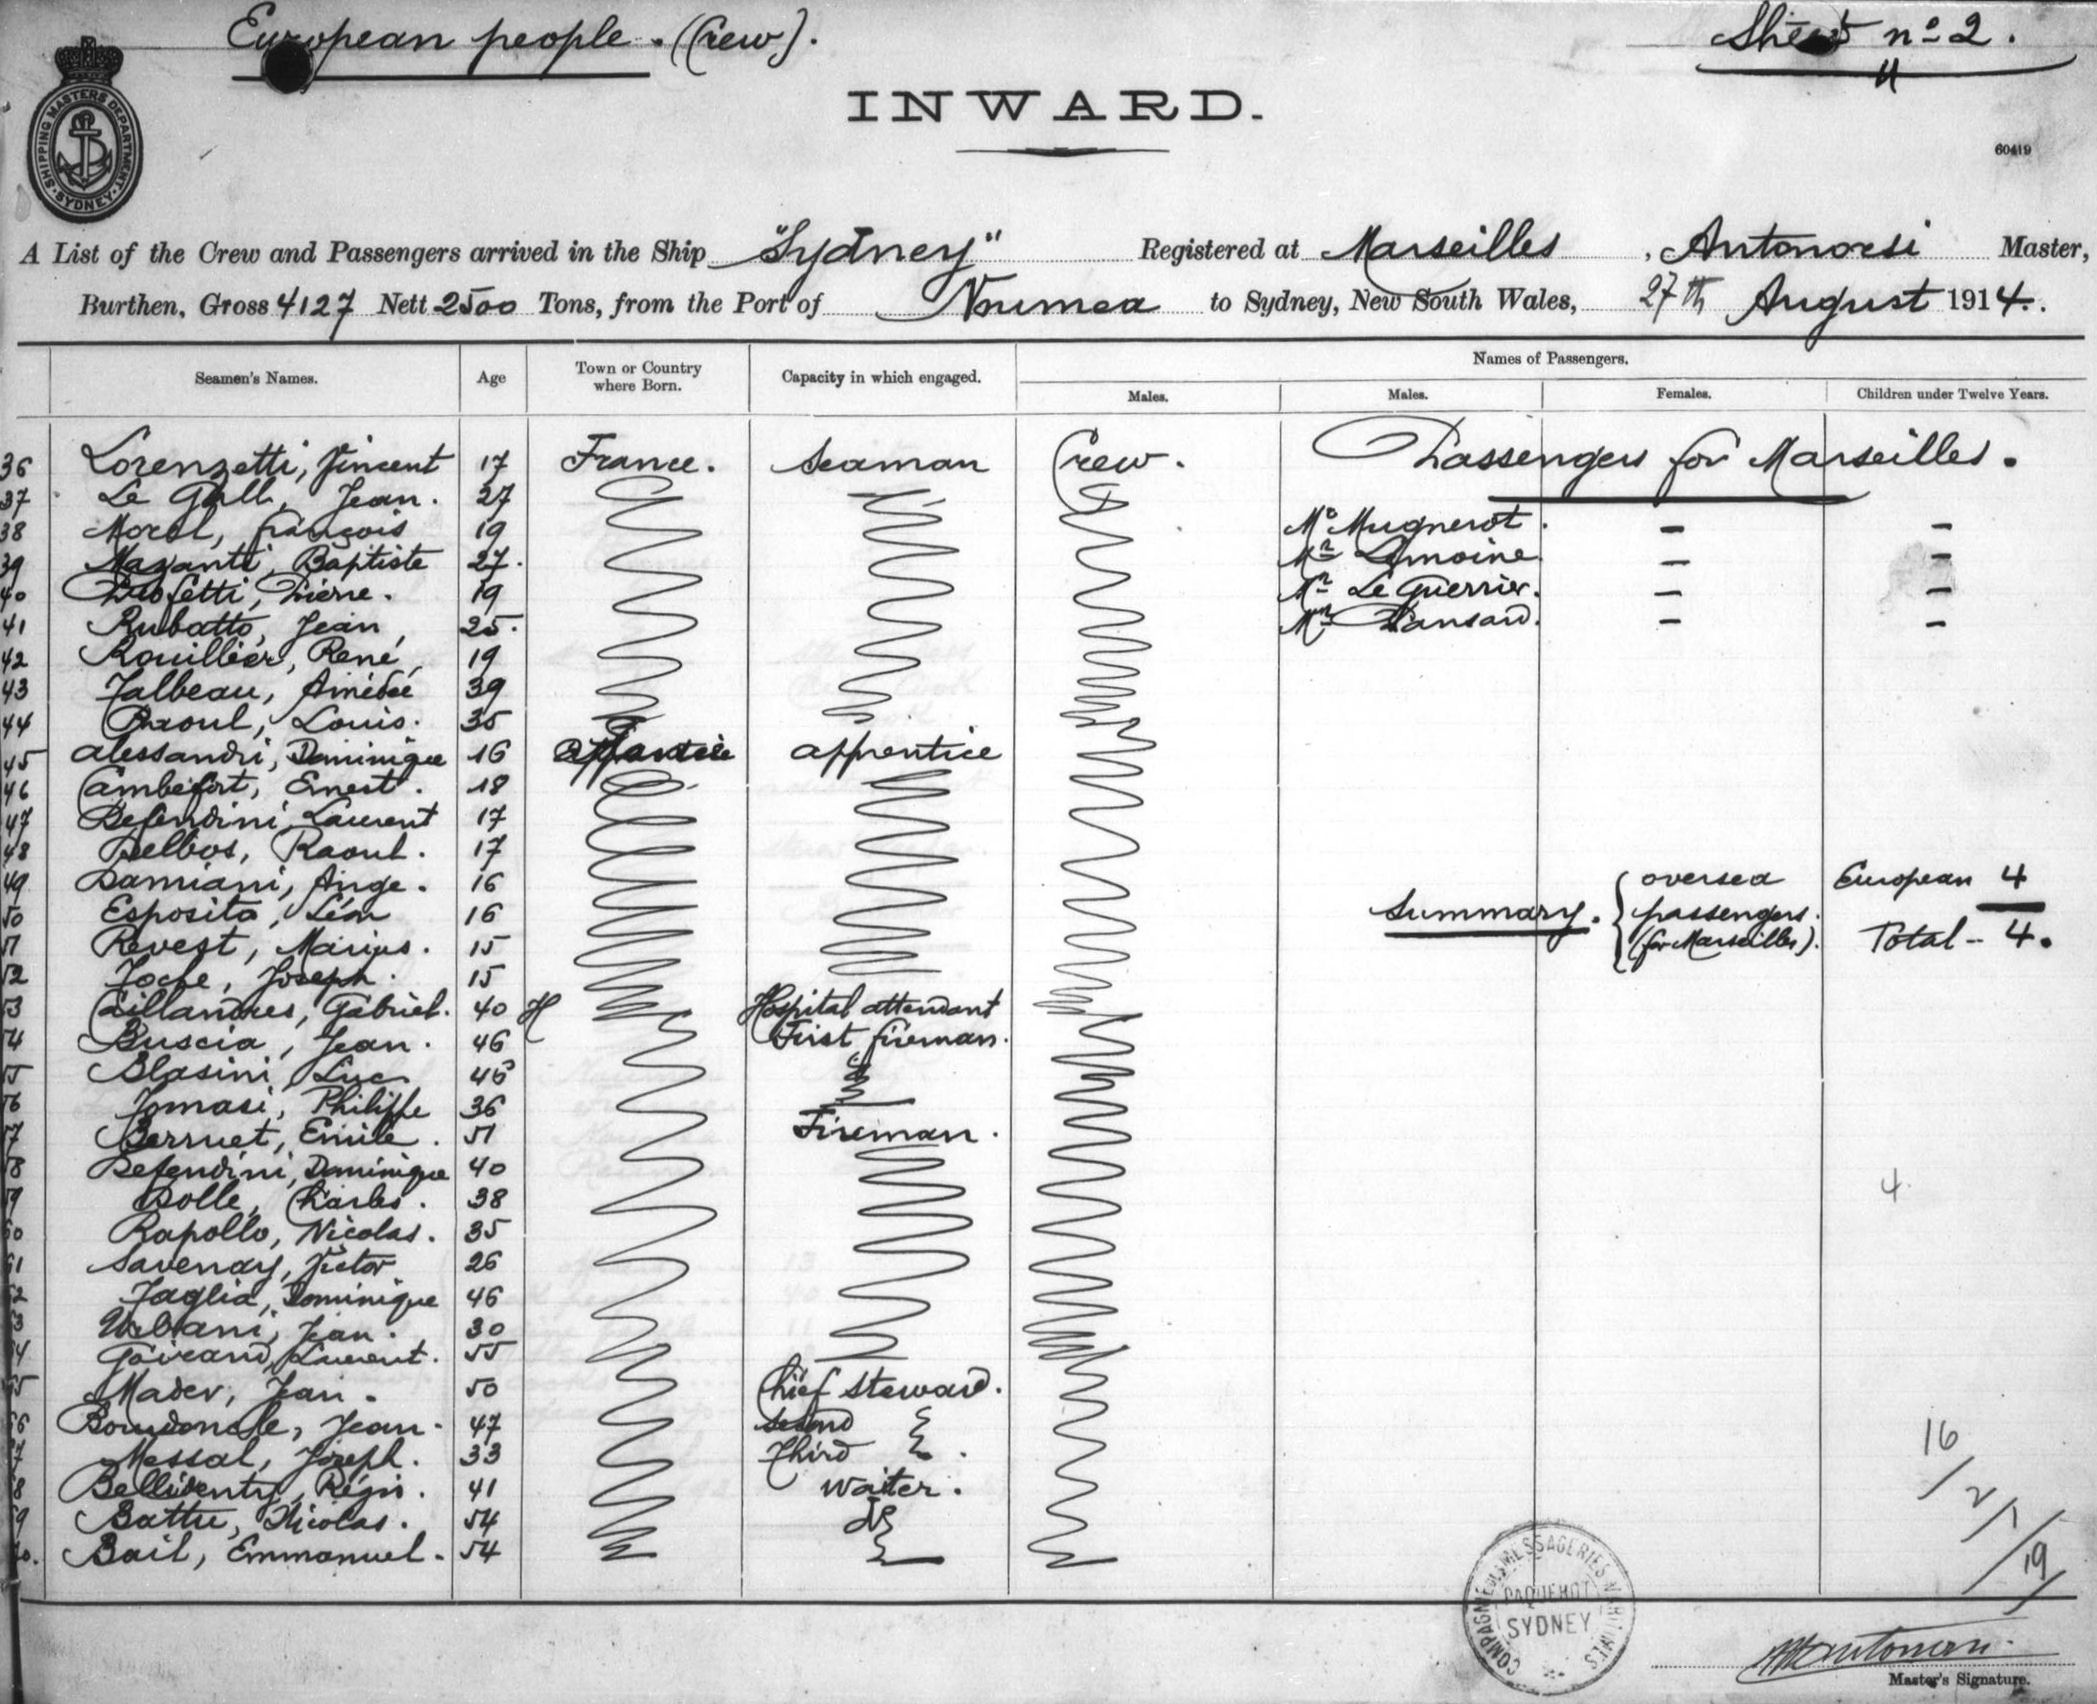 European people. (Crew).
Sheet nº 2.
SHIPPING MASTERS DEPARTMENT SYDNEY
INWARD.
60419
A List of the Crew and Passengers arrived in the Ship "Sydney" Registered at Marseilles, Antonorsi Master,
Burthen, Gross 4127 Nett 2500 Tons, from the Port of Noumea to Sydney, New South Wales, 27th August 1914.
Names of Passengers.
Seamen's Names. Age Town or Country where Born. Capacity in which engaged. Males. Males. Females. Children under Twelve Years.
36 Lorenzetti, Vincent 17 France. Seaman Crew. Passengers for Marseilles.
37 Le Gall, Jean. 27
38 Morel, François 19 Mr Mugnerot. - -
39 Mazanti, Baptiste 27. Mr Lemoine - -
40 Profetti, Pierre. 19 Mr Le Guerrier. - -
41 Rubatto, Jean, 25. Mr Pansard. - -
42 Rouillier, René, 19
43 Talbeau, Amédée 39
44 Raoul, Louis. 35
45 Alessandri, Dominique 16 apprentice
46 Cambefort, Ernest. 18
47 Defendini, Laurent 17
48 Delbos, Raoul. 17
49 Damiani, Ange. 16 oversea European 4
50 Esposito, Léon 16 Summary. passengers.
51 Revest, Marius. 15 (for Marseilles). Total - 4.
52 Foche, Joseph. 15
53 Caillandres, Gabriel. 40 H Hospital attendant
54 Buscia, Jean. 46 First fireman.
55 Blasini, Luc 46
56 Tomasi, Philippe 36
57 Berruet, Emile. 51 Fireman.
58 Defendini, Dominique 40
59 Dolle, Charles. 38 4
60 Rapollo, Nicolas. 35
61 Savenay, Victor 26
62 Taglia, Dominique 46
63 Urbani, Jean. 30
64 Goirand, Laurent. 55
65 Mader, Jean. 50 Chief steward.
66 Bourdoncle, Jean. 47 second
67 Messal, Joseph. 33 Third
68 Régis. 41 waiter.
69 Battu, Nicolas. 54 do
70. Bail, Emmanuel. 54
16/2/1/19/
COMPAGNIE DES MESSAGERIES MARITIMES
PAQUEBOT
SYDNEY
Master's Signature.